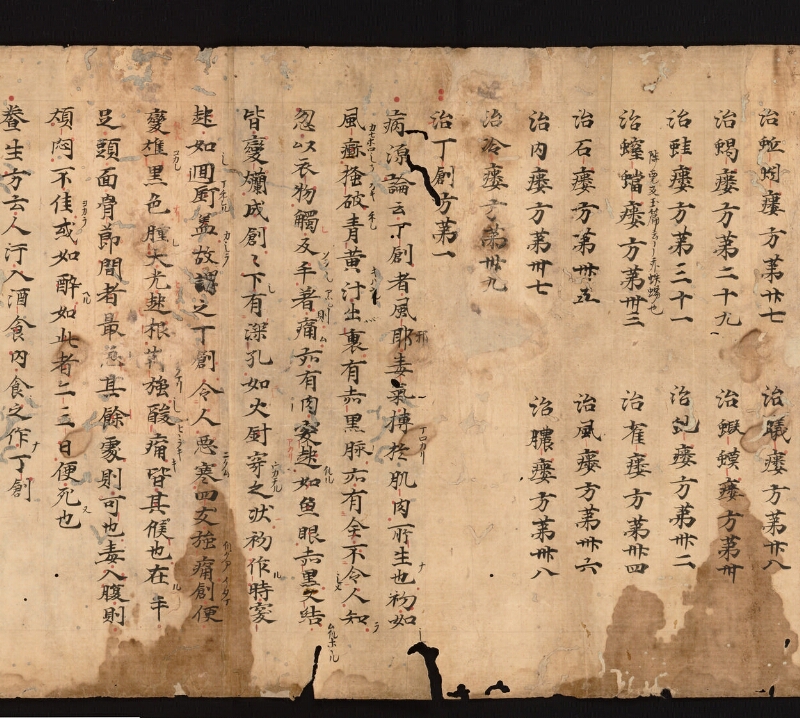 治蚯蚓瘻方第廿七 治蟻瘻方第廿八
治蝎瘻方第二十九 治蝦蟆瘻方第卅
治蛙瘻方第三十一 治虵瘻方第卅二
治螲蟷瘻方第卅三 治雀瘻方第卅四
治石瘻方第卅五 治風瘻方第卅六
治内瘻方第卅七 治膿瘻方第卅八
治冷瘻方第卅九
治丁創方第一
病源論云丁創者風耶毒氣搏於肌肉所生也初如
風㾦搔破青黄汁出裏有赤黒脉亦有全不令人知
忽以衣物觸及手著痛亦有肉突起如魚眼赤黒又結
皆變爛成創〻下有深孔如火針穿之状初作時突
起如囬釘盖故謂之丁創令人悪寒四支強痛創便
變焦黒色腫大光起根 強酸痛皆其候也在手
足頭面骨節間者最急其餘處則可也毒入腹則
煩悶不佳或如醉如此者二三日便死也
養生方云人汗入酒食内食之作丁創